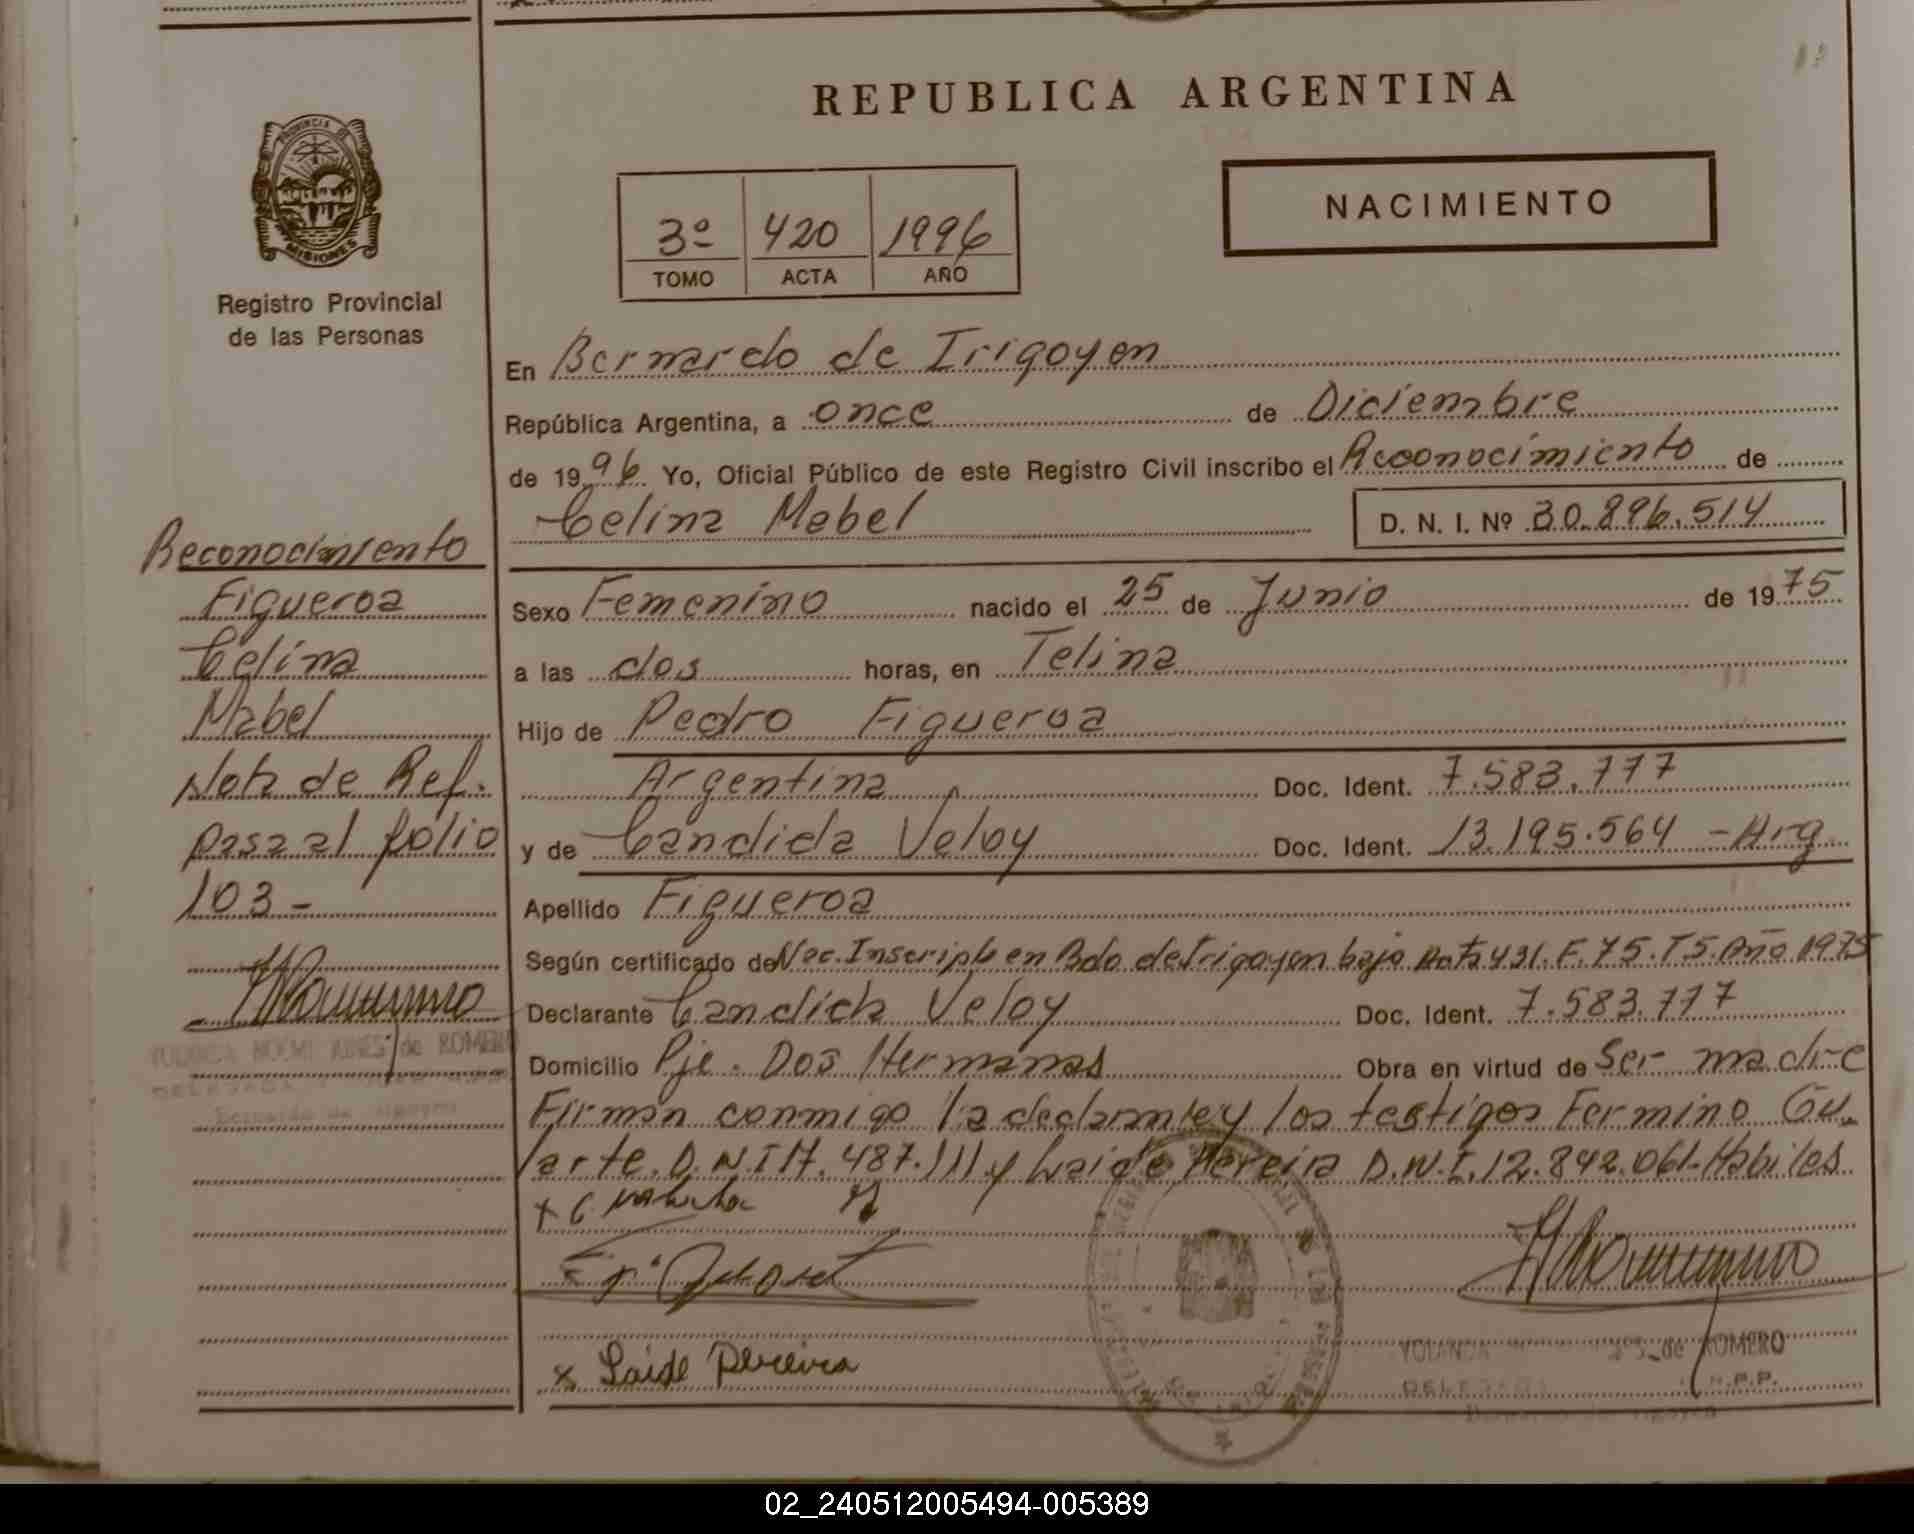 REPUBLICA ARGENTINA
NACIMIENTO
3º 420 1996
TOMO ACTA AÑO
PROVINCIA DE
MISIONES
Registro Provincial
de las Personas
En Bernardo de Irigoyen
República Argentina, a once de Diciembre
de 1996 Yo, Oficial Público de este Registro Civil inscribo el Reconocimiento de
Celina Mabel D. N. I. Nº 30.896.514
Sexo Femenino nacido el 25 de Junio de 1975
a las dos horas, en Telina
Hijo de Pedro Figueroa
Argentina Doc. Ident. 7.583.777
y de Candida Veloy Doc. Ident. 13.195.564 - Arg.
Apellido Figueroa
Según certificado de Nac. Inscripto en Bdo de Irigoyen bajo Acta 431. F. 75. T 5. Año 1975
Declarante Candida Veloy Doc. Ident. 7.583.777
Domicilio Pje. Dos Hermanas Obra en virtud de Ser madre
Firman conmigo la declarante y los testigos Fermino Gu
larte. D.N.I 17.487.111 y Laide Pereira D.N.I. 12.842.061- Habiles
x Laide Pereira
Reconocimiento
Figueroa
Celina
Mabel
Nota de Ref.
pasa al folio
103 -
YOLANDA NOEMI de ROMERO
DELEGADA
Bernardo de Irigoyen
YOLANDA de ROMERO
DELEGADA R.P.P.
02_240512005494-005389